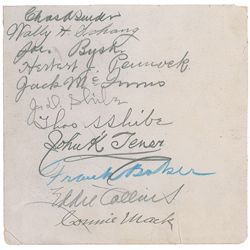 Wally H
Joe. Bush
Herbert J. Pennock
Jack McInnis
J. D. Shibe
Thos S Shibe
John K Tener
Frank Baker
Eddie Collins
Connie Mack